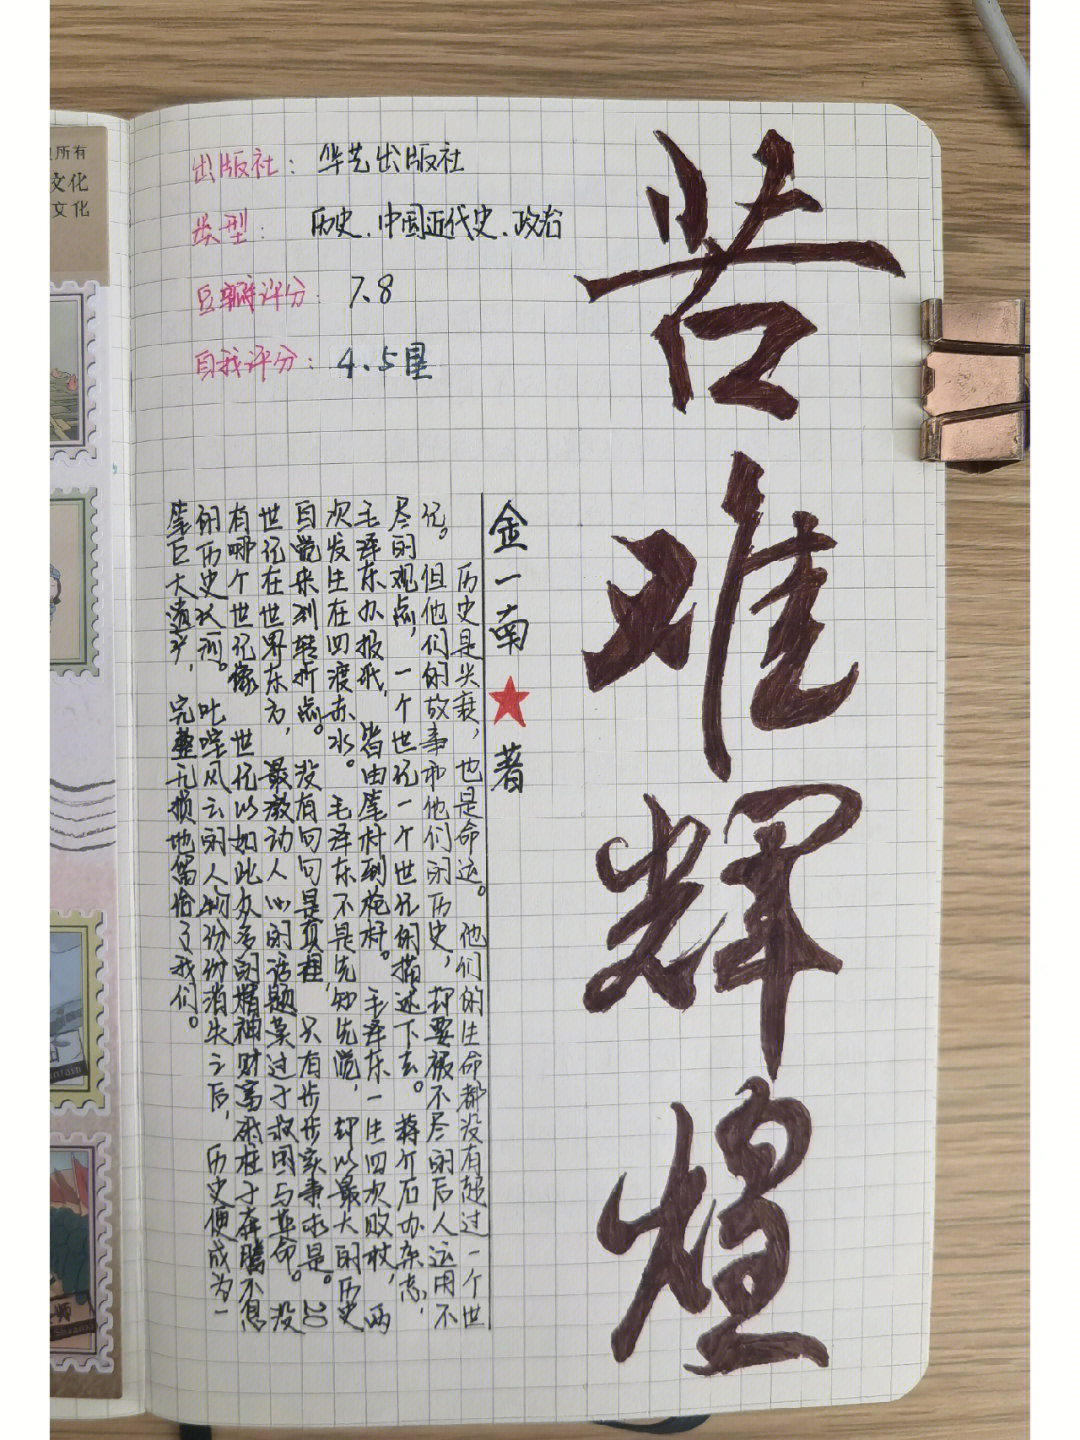 苦难辉煌
出版社：华艺出版社
类型：历史、中国近代史、政治
豆瓣评分：7.8
自我评分：4.5星
金一南★著
历史是兴衰，也是命运。他们的生命都没有超过一个世
纪。但他们的故事和他们的历史，却要被不尽的后人运用不
尽的观点，一个世纪一个世纪的描述下去。蒋介石办杂志，
毛泽东办报纸，皆由笔杆到枪杆。毛泽东一生四次败仗，两
次发生在四渡赤水。毛泽东不是先知先觉，却以最大的历史
自觉来到转折点。没有句句是真理，只有步步实事求是。20
世纪在世界东方，最激动人心的话题莫过于救国与革命。没
有哪个世纪像世纪以如此众多的精神财富于奔腾不息
的历史长河。叱咤风云的人物纷纷消失之后，历史便成为一
笔巨大遗产，完整无损地留给了我们。
所有
文化
文化
师